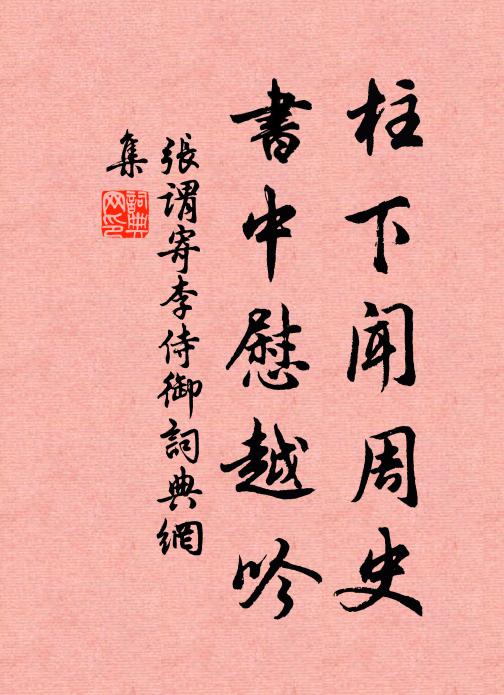 柱下闻周史
書中慰越吟
張谓寄李侍御詞典網
集
詞典网印